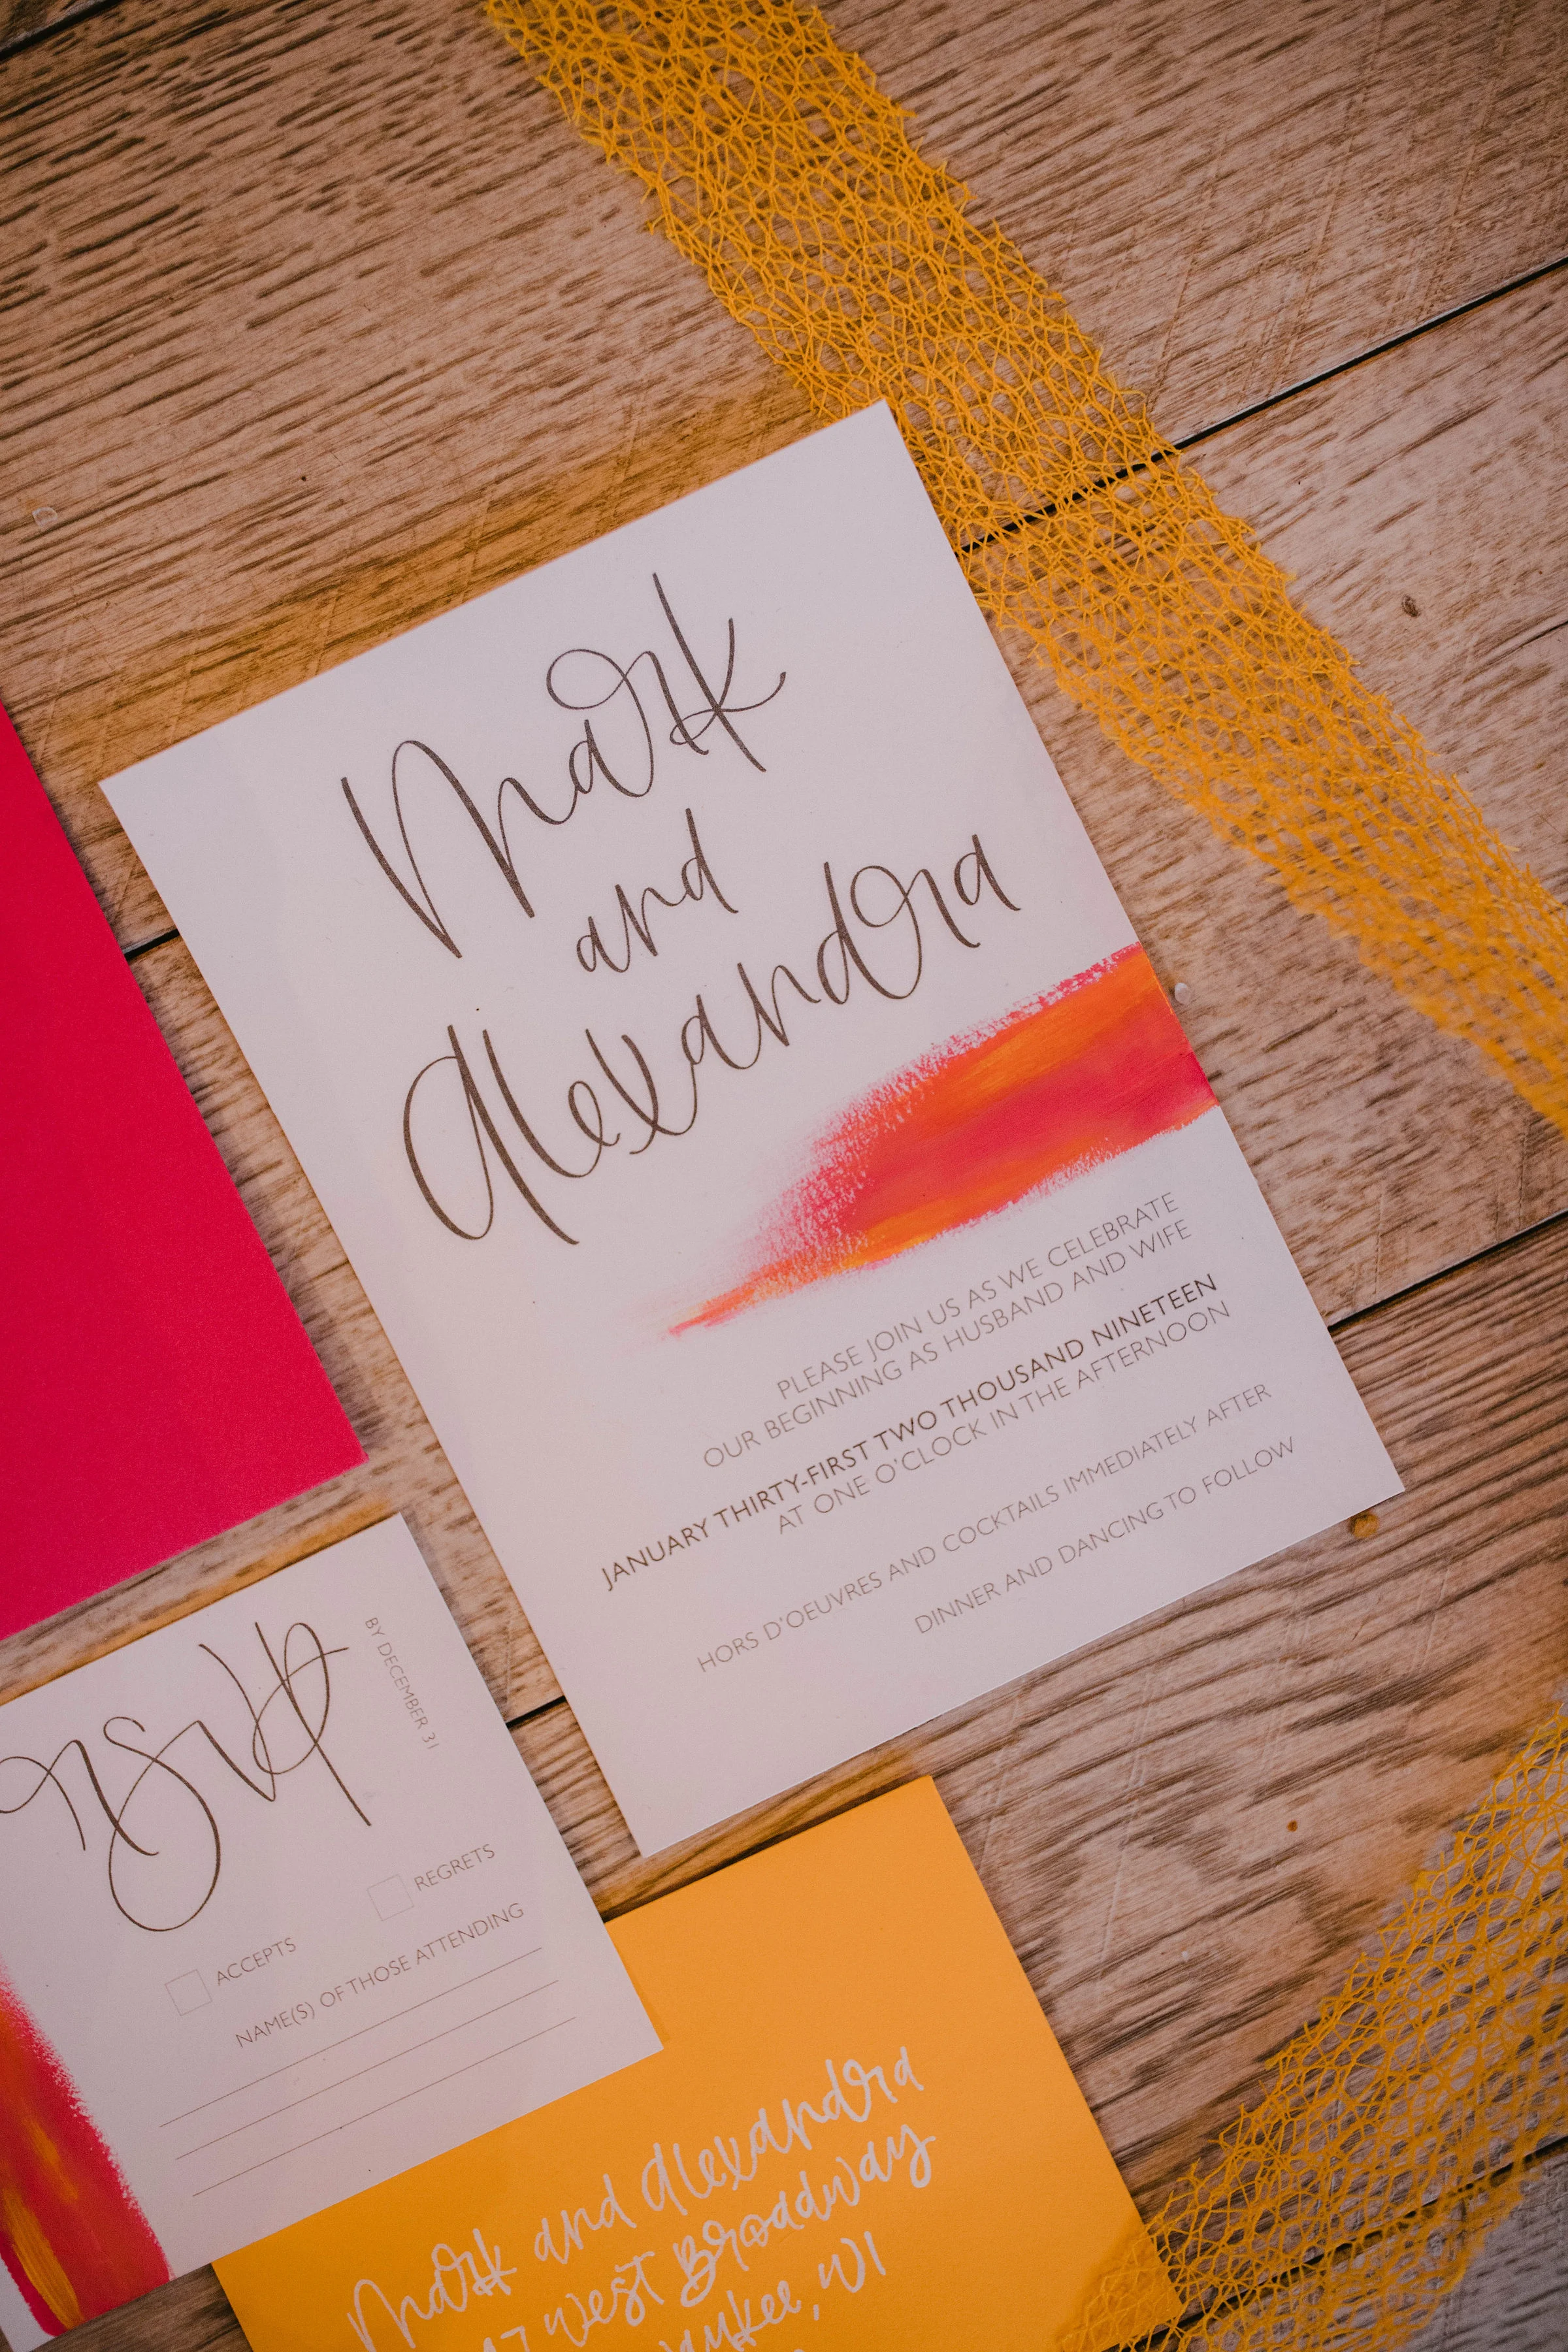 Mark
and
Alexandra
PLEASE JOIN US AS WE CELEBRATE
OUR BEGINNING AS HUSBAND AND WIFE
JANUARY THIRTY-FIRST TWO THOUSAND NINETEEN
AT ONE O'CLOCK IN THE AFTERNOON
HORS D'OEUVRES AND COCKTAILS IMMEDIATELY AFTER
DINNER AND DANCING TO FOLLOW
rsvp
BY DECEMBER 31
ACCEPTS
REGRETS
NAME(S) OF THOSE ATTENDING
Mark and Alexandra
West Broadway
WI